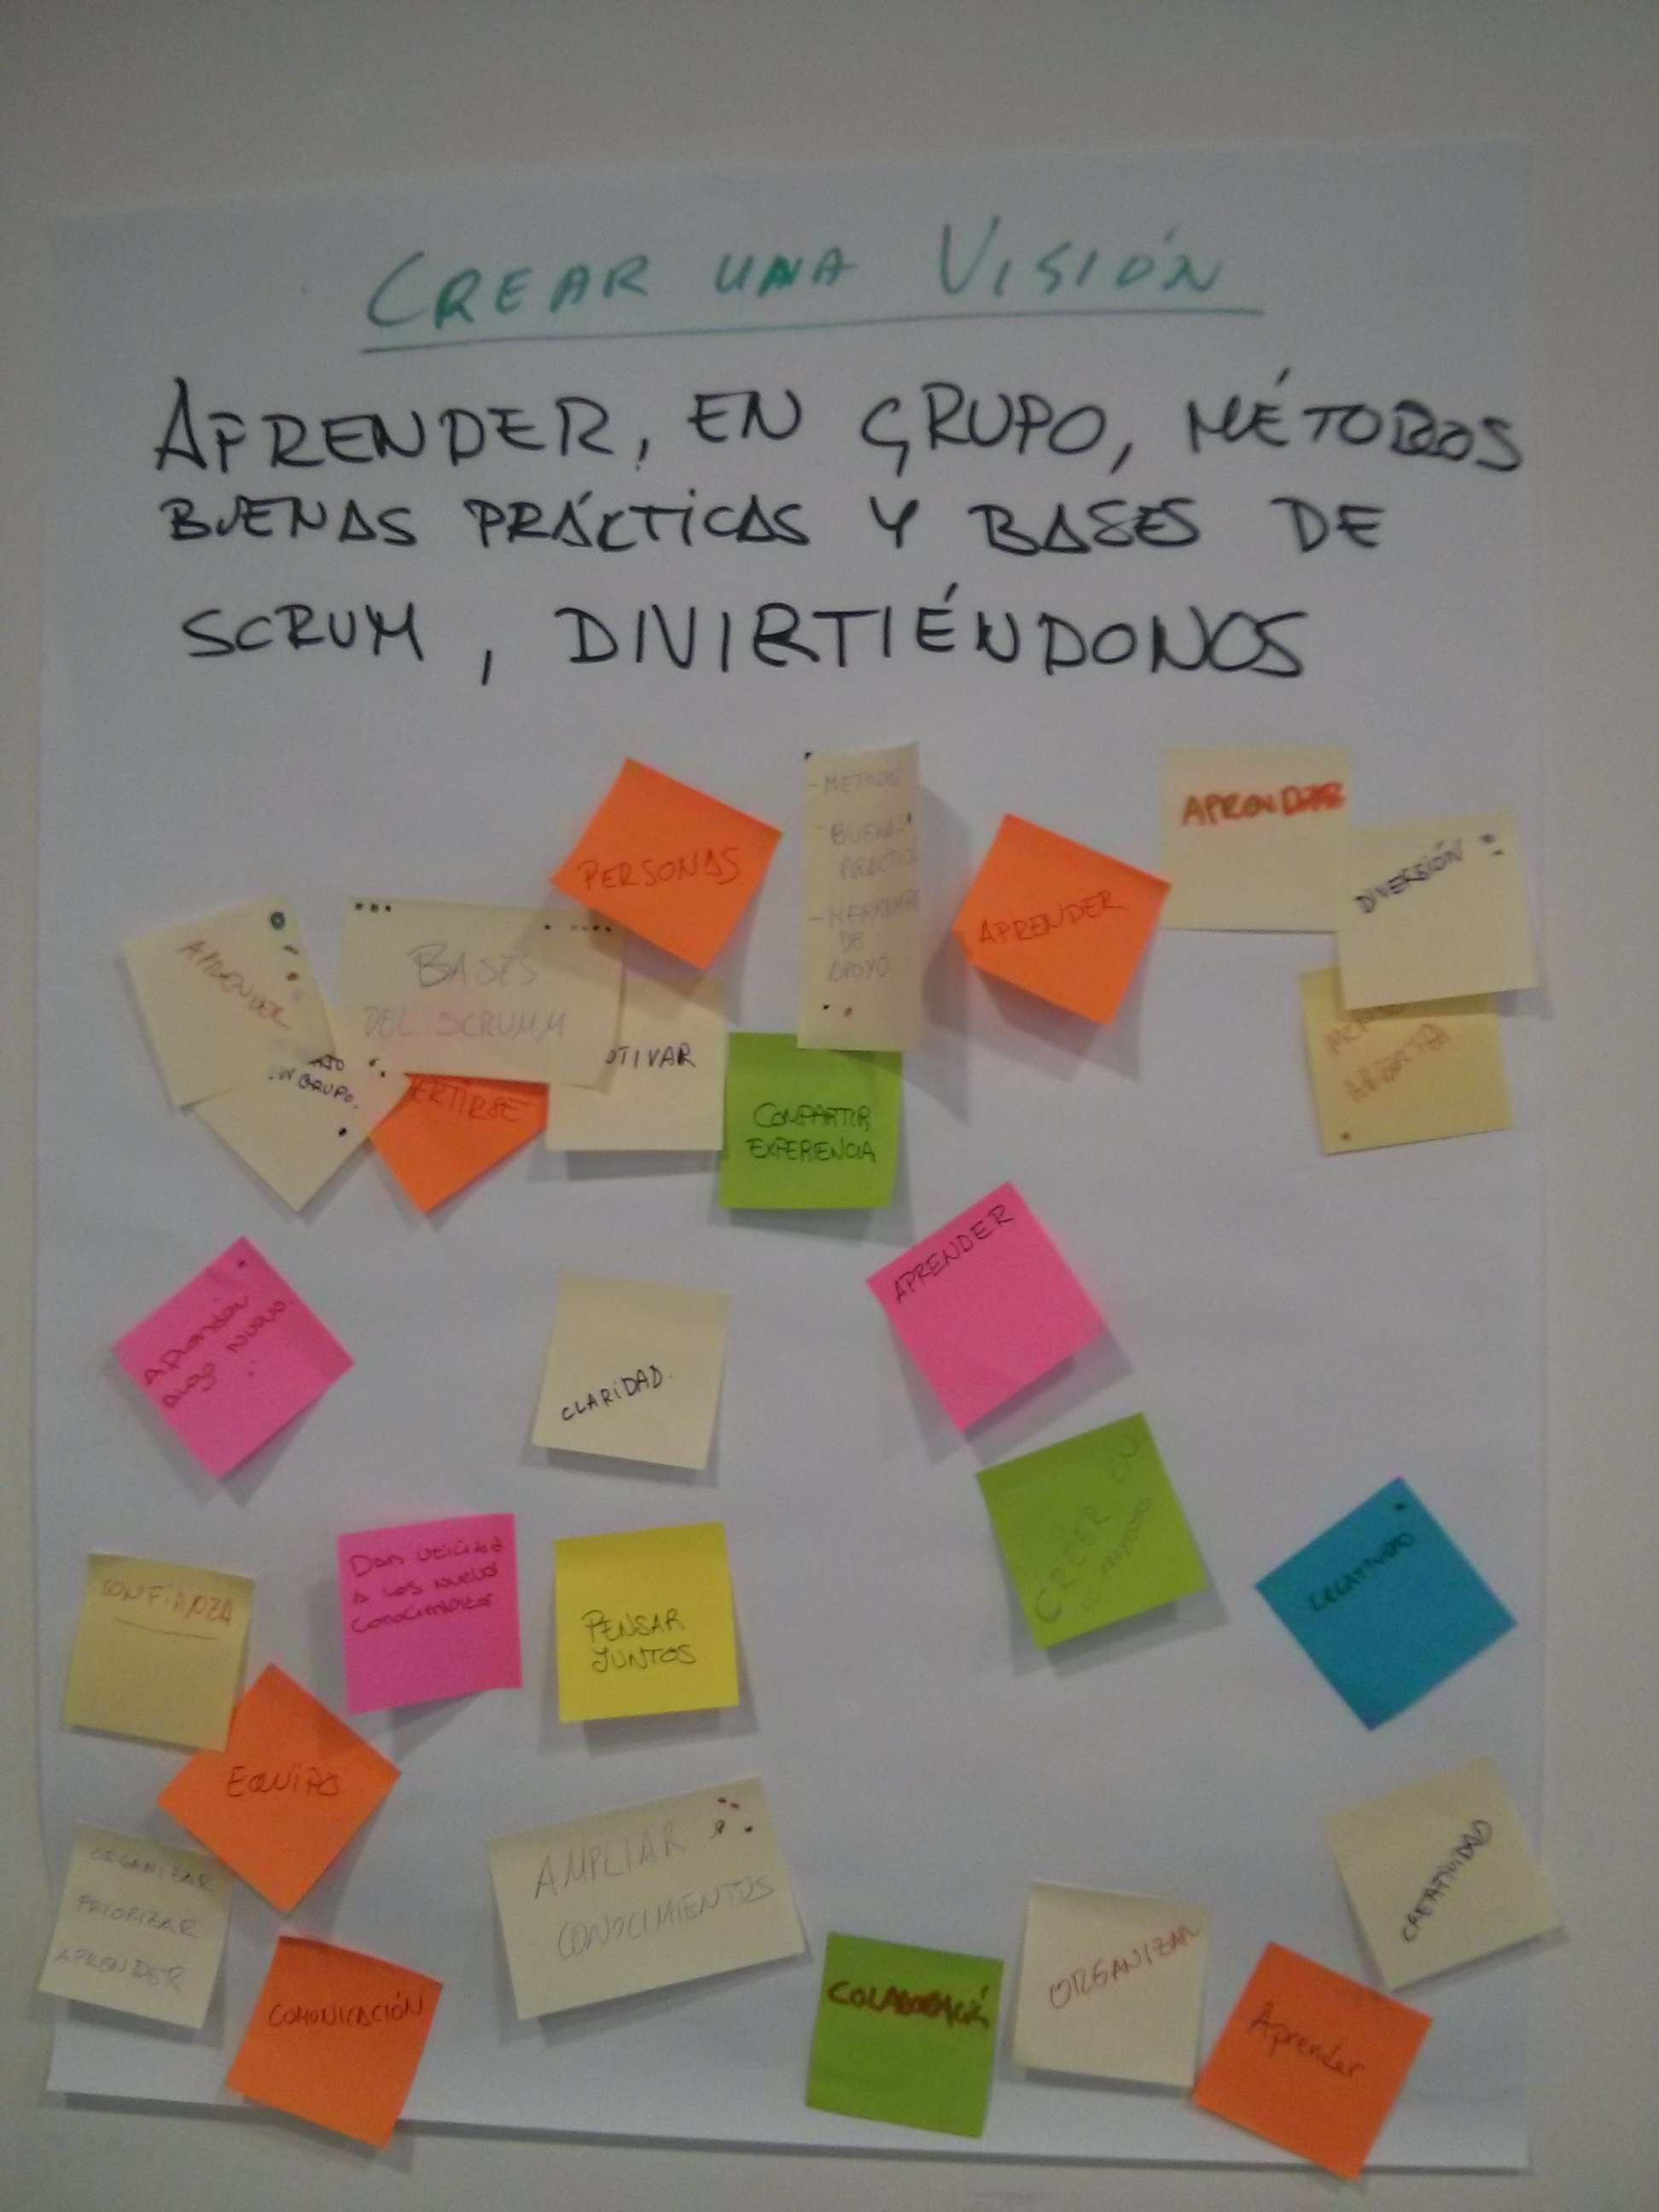 CREAR UNA VISIÓN
APRENDER, EN GRUPO, MÉTODOS
BUENAS PRÁCTICAS Y BASES DE
SCRUM, DIVIRTIÉNDONOS
PERSONAS
- METODOS
- BUENAS
PRACTIC
DE
APOYO
APRENDER
APRENDER
DIVERSIÓN
APRENDER
BASES
DEL SCRUMM
GRUPO.
ERTIRSE
OTIVAR
COMPARTIR
EXPERIENCIA
ABIERTA
Aprender
algo nuevo
CLARIDAD.
APRENDER
CREER EN
CREATIVIDAD
CONFIANZA
Dar utilidad
a los nuevos
conocimientos
PENSAR
JUNTOS
EQUIPO
ORGANIZAR
PRIORIZAR
APRENDER
AMPLIAR
CONOCIMIENTOS
CREATIVIDAD
COMUNICACIÓN
COLABORACIÓN
ORGANIZAR
Aprender